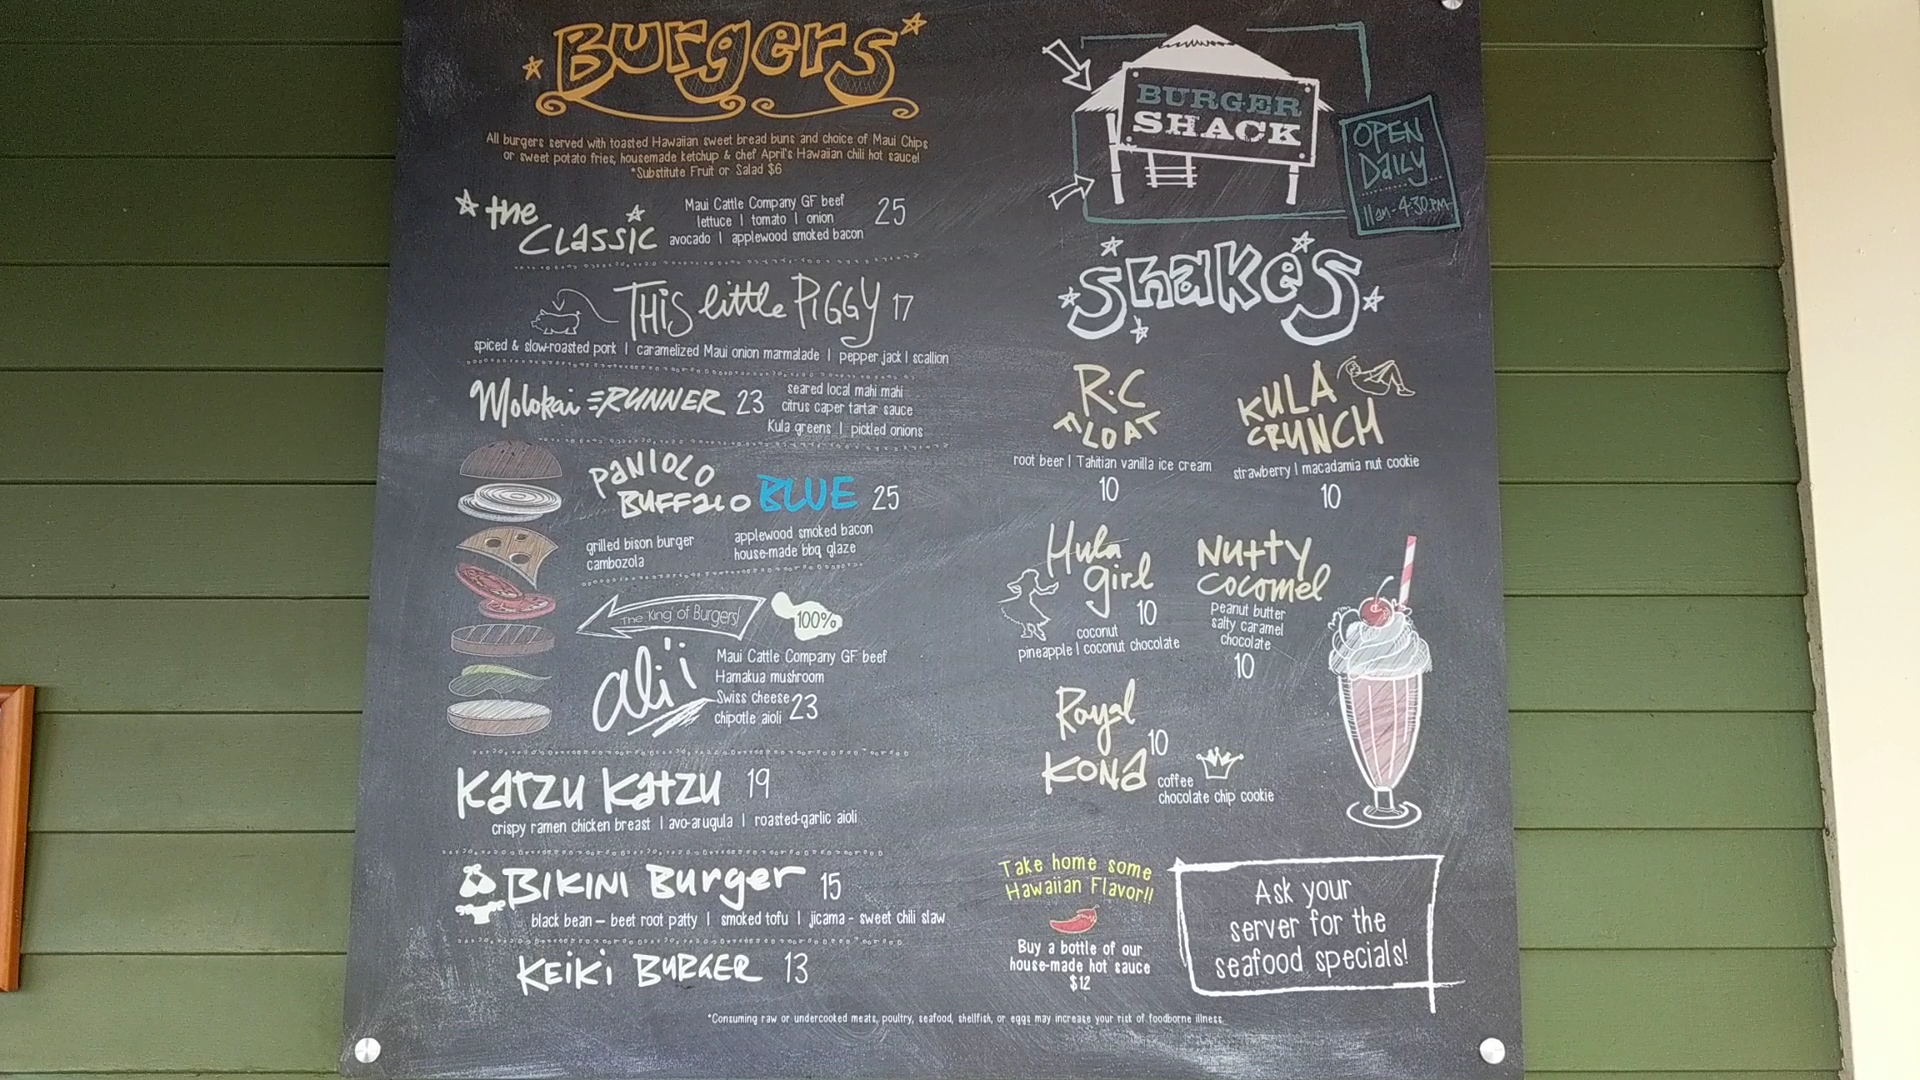 Burgers
All burgers served with toasted Hawaiian sweet bread buns and choice of Maui Chips
or sweet potato fries, housemade ketchup & chef April's Hawaiian chili hot sauce!
*Substitute Fruit or Salad $6
the CLassic 25
Maui Cattle Company GF beef
lettuce | tomato | onion
avocado | applewood smoked bacon
THis little PiGGY 17
spiced & slow-roasted pork | caramelized Maui onion marmalade | pepper jack | scallion
Molokai RUNNER 23
seared local mahi mahi
citrus caper tartar sauce
Kula greens | pickled onions
PANIOLO
BUFFALO BLUE 25
grilled bison burger
cambozola
applewood smoked bacon
house-made bbq glaze
The 'King' of Burgers!
100%
ali'i
Maui Cattle Company GF beef
Hamakua mushroom
Swiss cheese
chipotle aioli 23
Katzu Katzu 19
crispy ramen chicken breast | avo-arugula | roasted-garlic aioli
BIKINI Burger 15
black bean – beet root patty | smoked tofu | jicama - sweet chili slaw
KEiKi BURGER 13
BURGER
SHACK
OPEN
DaiLY
11am-4:30pm
Shakes
R.C
FLOAT
root beer | Tahitian vanilla ice cream
10
KULA
CRUNCH
strawberry | macadamia nut cookie
10
Hula
girl 10
coconut
pineapple | coconut chocolate
Nutty
cocomel
peanut butter
salty caramel
chocolate
10
Royal
KONa 10
coffee
chocolate chip cookie
Take home some
Hawaiian Flavor!!
Buy a bottle of our
house-made hot sauce
$12
Ask your
server for the
seafood specials!
*Consuming raw or undercooked meats, poultry, seafood, shellfish, or eggs may increase your risk of foodborne illness.